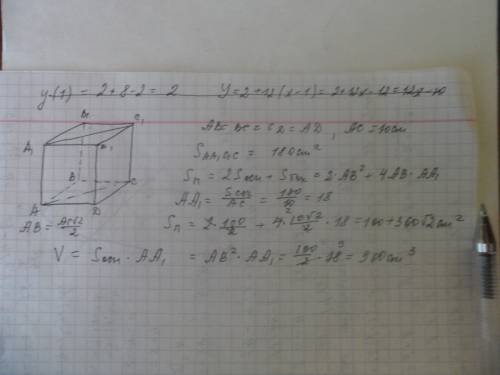 y(1) = 2+8-2 = 2 Y=2+12(x-1)=2+12x-12=12x-10
B₁ C₁
A₁ D₁
B C
A D
AB=BC=CD=AD, AC=10cm
S AA₁C₁C = 180cm²
Sп = 2Sосн + Sбок = 2·AB² + 4AB·AA₁
AA₁ = Sсеч/AC = 180/10 = 18
AB = AC√2/2
Sп = 2·100/2 + 4·10√2/2·18 = 100+360√2cm²
V = Sосн·AA₁ = AB²·AA₁ = 100/2·18 = 900cm³